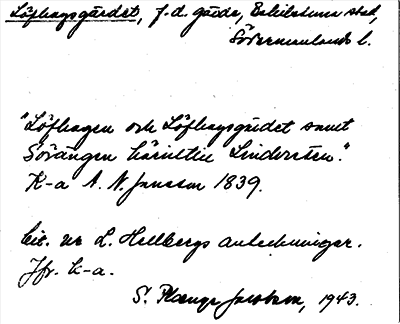 Löfhagsgärdet, f.d. gärde, Eskilstuna stad,
Södermanlands l.
"Löfhagen och Löfhagsgärdet samt
Sörängen härintill Lindersten."
K-a A. N. Jansson 1839.
Cit. ur L. Hellbergs anteckningar.
Jfr. k-a.
S. Plænge Jacobson, 1943.